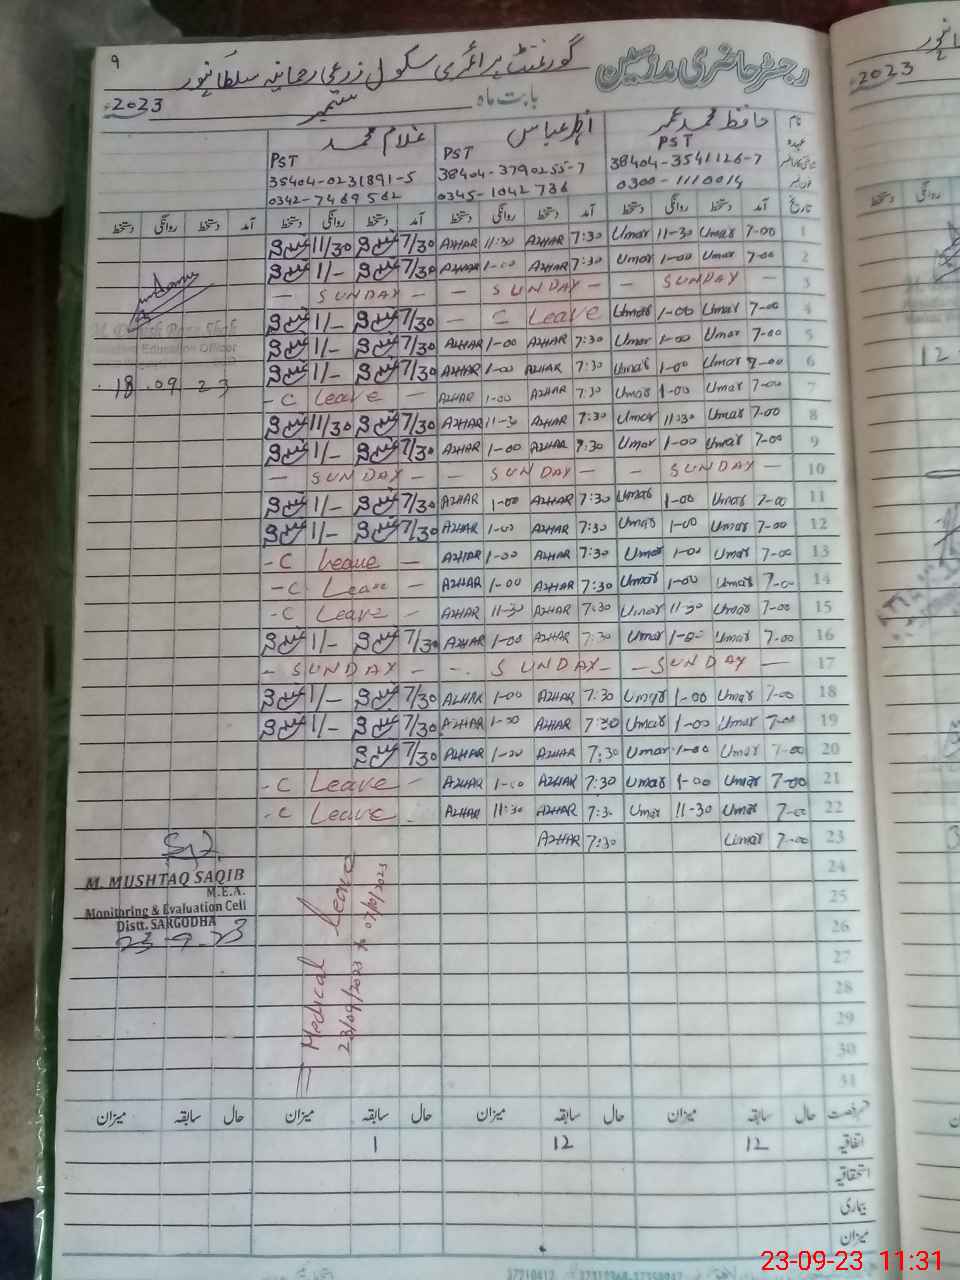 ۹ گورنمنٹ پرائمری سکول زرعی رحمانیہ سلطانپور رجسٹر حاضری مدرسین
2023 ستمبر بابت ماہ
غلام محمد اظہر عباس حافظ محمد عمر نام
PST PST PST عہدہ
35404-0231891-5 38404-3790255-7 38404-3541126-7
0342-7469562 0345-1042736 0300-1110014
دستخط روانگی دستخط آمد دستخط روانگی دستخط آمد دستخط روانگی دستخط آمد دستخط روانگی دستخط آمد تاریخ
11/30 7/30 AZHAR 11:30 AZHAR 7:30 Umar 11-30 Umar 7-00 1
1/- 7/30 AZHAR 1-00 AZHAR 7:30 Umar 1-00 Umar 7-00 2
- SUNDAY - - SUNDAY - - SUNDAY 3
1/- 7/30 - C Leave Umar 1-00 Umar 7-00 4
1/- 7/30 AZHAR 1-00 AZHAR 7:30 Umar 1-00 Umar 7-00 5
18.09 23 1/- 7/30 AZHAR 1-00 AZHAR 7:30 Umar 1-00 Umar 7-00 6
- C Leave - AZHAR 1-00 AZHAR 7:30 Umar 1-00 Umar 7-00 7
11/30 7/30 AZHAR 11-30 AZHAR 7:30 Umar 11:30 Umar 7-00 8
1/- 7/30 AZHAR 1-00 AZHAR 7:30 Umar 1-00 Umar 7-00 9
- SUNDAY - - SUNDAY - - SUNDAY - 10
1/- 7/30 AZHAR 1-00 AZHAR 7:30 Umar 1-00 Umar 7-00 11
1/- 7/30 AZHAR 1-00 AZHAR 7:30 Umar 1-00 Umar 7-00 12
- C Leave - AZHAR 1-00 AZHAR 7:30 Umar 1-00 Umar 7-00 13
- C Leave - AZHAR 1-00 AZHAR 7:30 Umar 1-00 Umar 7-00 14
- C Leave - AZHAR 11-30 AZHAR 7:30 Umar 11-30 Umar 7-00 15
1/- 7/30 AZHAR 1-00 AZHAR 7:30 Umar 1-00 Umar 7-00 16
- SUNDAY - - SUNDAY - - SUNDAY - 17
1/- 7/30 AZHAR 1-00 AZHAR 7:30 Umar 1-00 Umar 7-00 18
1/- 7/30 AZHAR 1-00 AZHAR 7:30 Umar 1-00 Umar 7-00 19
7/30 AZHAR 1-00 AZHAR 7:30 Umar 1-00 Umar 7-00 20
- C Leave - AZHAR 1-00 AZHAR 7:30 Umar 1-00 Umar 7-00 21
- C Leave AZHAR 11:30 AZHAR 7:30 Umar 11-30 Umar 7-00 22
AZHAR 7:30 Umar 7-00 23
24
M. MUSHTAQ SAQIB
M.E.A. 25
Monitoring & Evaluation Cell
Distt. SARGODHA 26
23-9-23
Medical Leave
23/09/2023 to 07/10/2023
27
28
29
30
31
میزان سابقہ حال میزان سابقہ حال میزان سابقہ حال میزان سابقہ حال رخصت
1 12 12 اتفاقیہ
استحقاقیہ
بیماری
میزان
23-09-23 11:31